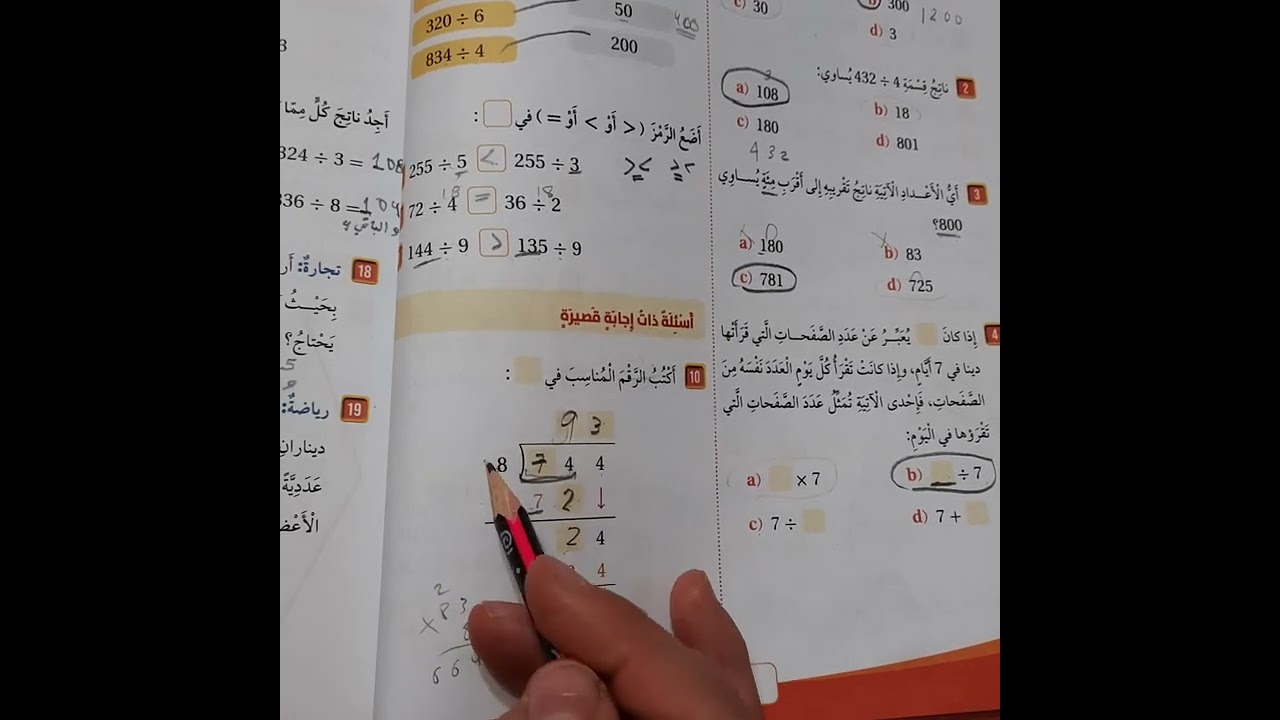 c) 30
b) 300
1200
d) 3
2 ناتِجُ قِسْمَةِ 4 ÷ 432 يُساوي:
a) 108
b) 18
c) 180
d) 801
432
3 أَيُّ الْأَعْدادِ الْآتِيَةِ ناتِجُ تَقْريبِهِ إِلى أَقْرَبِ مِئَةٍ يُساوي
800؟
a) 180
b) 83
c) 781
d) 725
4 إِذا كانَ يُعَبِّرُ عَنْ عَدَدِ الصَّفَحاتِ الَّتي قَرَأَتْها
دينا في 7 أَيّامٍ، وإِذا كانَتْ تَقْرَأُ كُلَّ يَوْمٍ الْعَدَدَ نَفْسَهُ مِنَ
الصَّفَحاتِ، فَإِحْدى الْآتِيَةِ تُمَثِّلُ عَدَدَ الصَّفَحاتِ الَّتي
تَقْرَؤُها في الْيَوْمِ:
a) × 7
b) ÷ 7
c) 7 ÷
d) 7 +
320 ÷ 6
50
400
834 ÷ 4
200
أَضَعُ الرَّمْزَ (> أَوْ < أَوْ =) في :
255 ÷ 5 < 255 ÷ 3
72 ÷ 4 = 36 ÷ 2
18 18
144 ÷ 9 > 135 ÷ 9
أَسْئِلَةٌ ذاتُ إِجابَةٍ قَصيرَةٍ
10 أَكْتُبُ الرَّقْمَ الْمُناسِبَ في :
9 3
8 7 4 4
7 2 ↓
2 4
4
2
8 3
×
6 6 4
أَجِدُ ناتِجَ كُلٍّ مِمّا
324 ÷ 3 = 108
836 ÷ 8 = 104
والباقي 4
18 تجارةٌ:
بِحَيْثُ
يَحْتاجُ؟
19 رياضةٌ:
دينارانِ
عَدَدِيَّةً